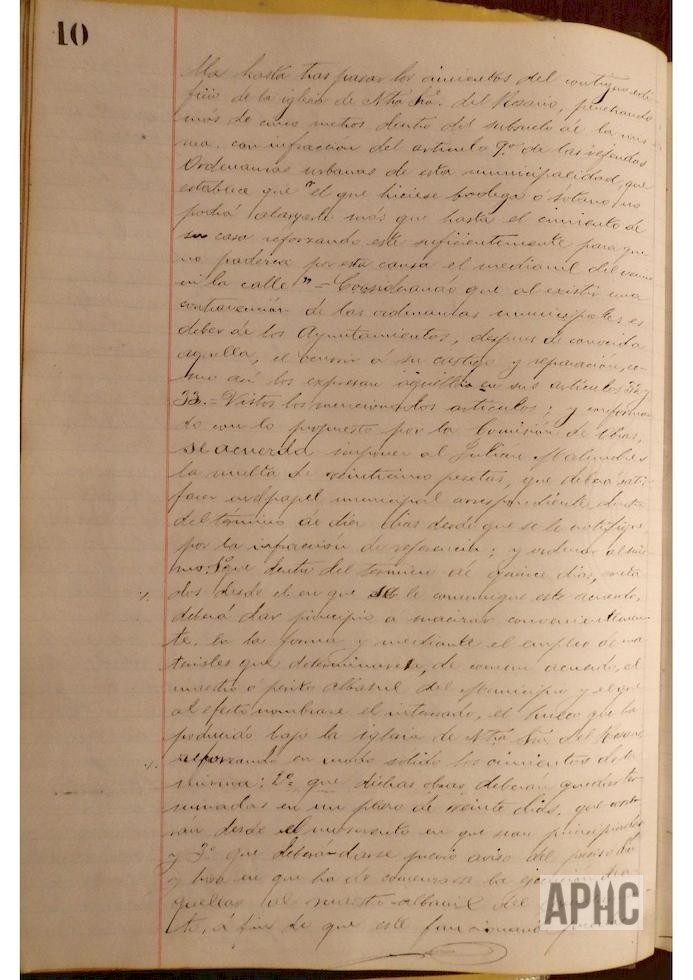 10
hasta traspasar los cimientos del contiguo edi-
ficio de la iglesia de Ntra Sra. del Rosario, penetrando
más de cinco metros dentro del subsuelo de la mis-
ma, con infracción del artículo 9º de las referidas
Ordenanzas urbanas de esta municipalidad, que
establece que "el que hiciese bodega ó sótano, no
podrá alargarle más que hasta el cimiento de
su casa reforzando este suficientemente para que
no padezca por esta causa el medianil del vecino
ni la calle" = Considerando que al existir una
contravención de las ordenanzas municipales es
deber de los Ayuntamientos, despues de conocida
aquella, el ocurrir á su castigo y reparación, co-
mo así los expresan aquellas en sus artículos 32 y
33. = Vistos los mencionados artículos; y conforman-
do con lo propuesto por la Comisión de Obras,
se acuerda imponer al Julian
la multa de veinticinco pesetas, que deberá satis-
facer en papel municipal correspondiente, dentro
del término de diez dias desde que se le notifique
por la infracción de referencia; y ordenar al mis-
mo: 1º que dentro del termino de quince dias, conta-
dos desde el en que se le comunique este acuerdo,
deberá dar principio a macizar convenientemen-
te, en la forma y mediante el empleo de ma-
teriales que determinaren, de comun acuerdo, el
maestro ó perito albañil del Municipio y el que
al efecto nombrase el interesado, el hueco que ha
producido bajo la iglesia de Ntra Sra. del Rosario
reforzando en modo sólido los cimientos de la
misma: 2º = que dichas obras deberán quedar ter-
minadas en un plazo de veinte dias, que conta-
rán desde el momento en que sean principiadas
y 3º que deberá darse previo aviso del dia
y hora en que ha de comenzarse la ejecución de a-
quellas al maestro albañil del
te, á fin de que este funcionario
APHC